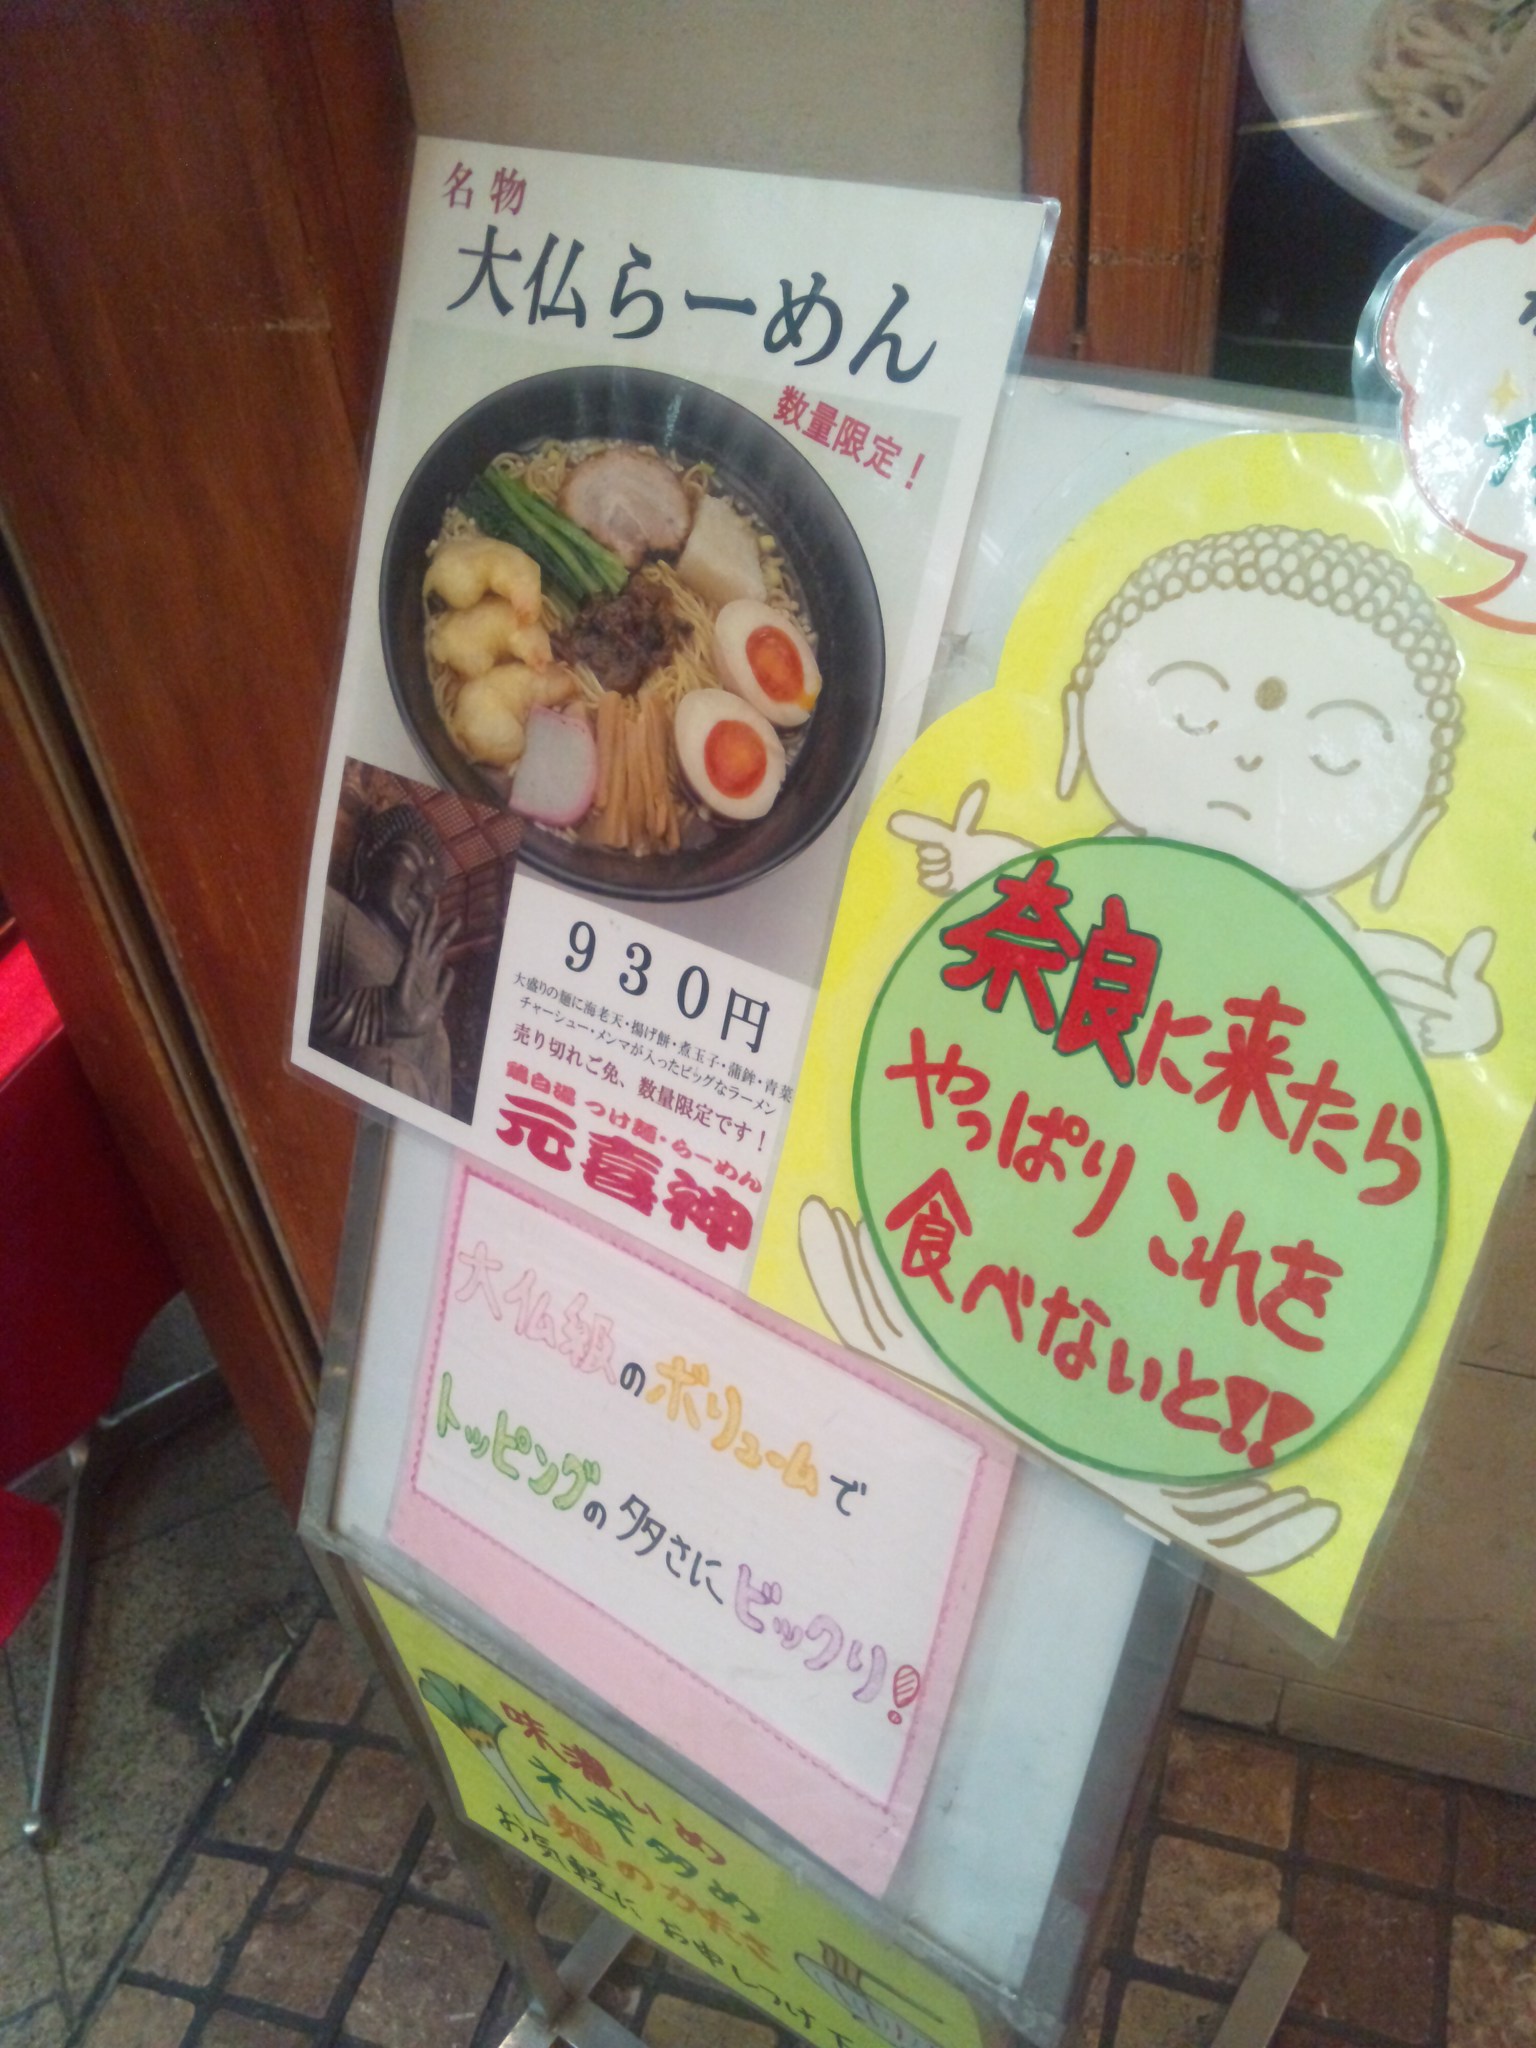 名物
大仏らーめん
数量限定！
930円
大盛りの麺に海老天・揚げ餅・煮玉子・蒲鉾・青菜
チャーシュー・メンマが入ったビッグなラーメン
売り切れご免、数量限定です！
鶏白湯 つけ麺・らーめん
元喜神
奈良に来たら
やっぱりこれを
食べないと!!
大仏級のボリュームで
トッピングの多さにビックリ!
味濃いめ
ネギ多め
麺のカタさ
お気軽にお申しつけ下